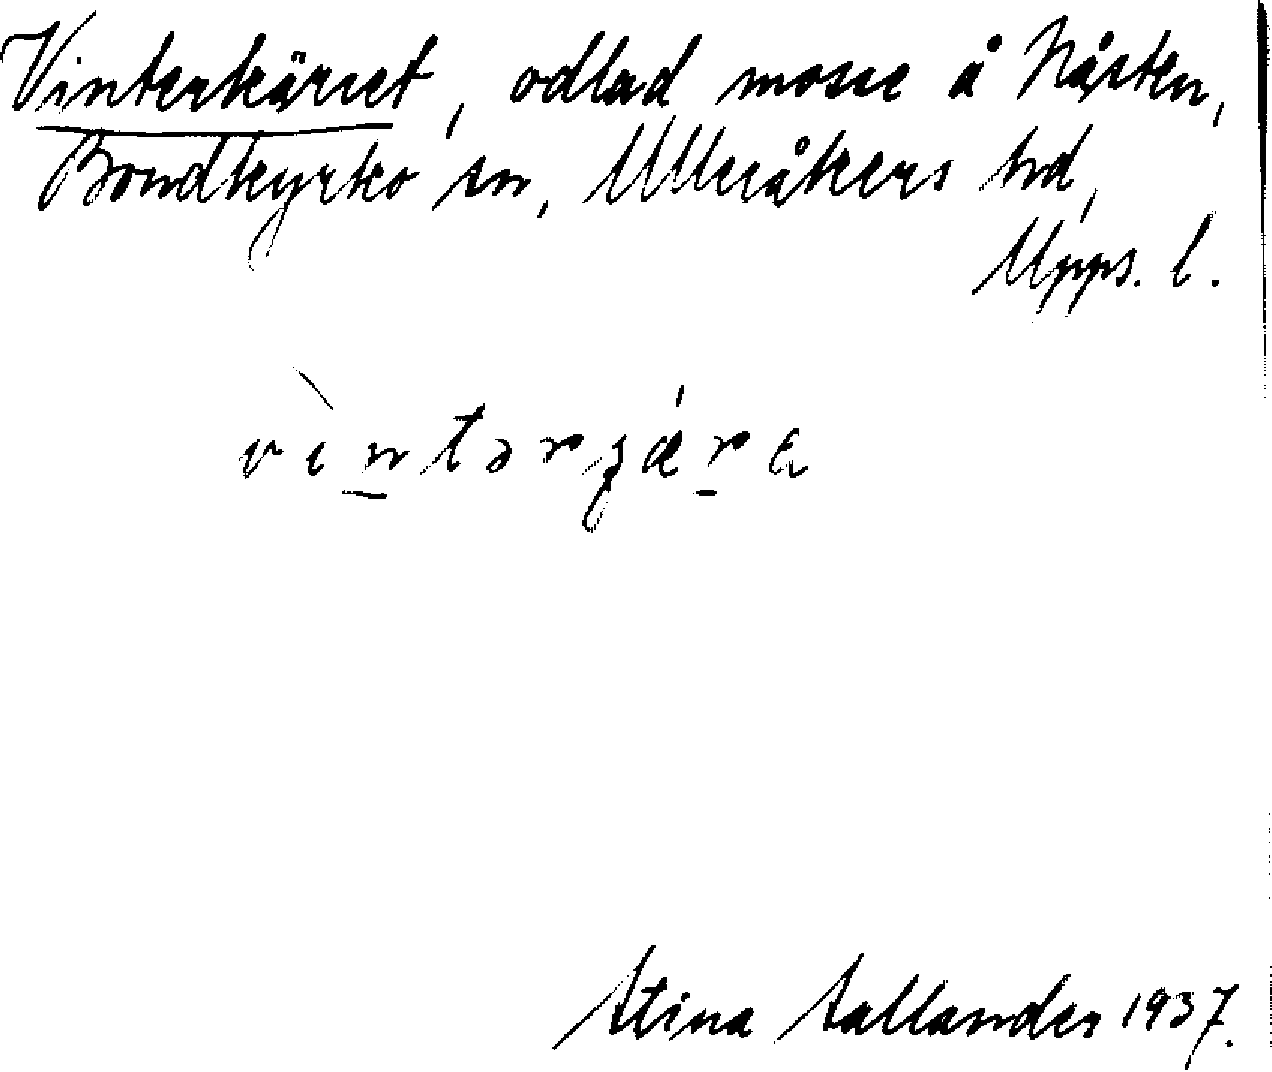 Vinterkärret, odlad mosse å Nåsten,
Bondkyrko sn, Ulleråkers hd,
Upps. l.
vìntərʒǽra
Stina Sallander 1937.